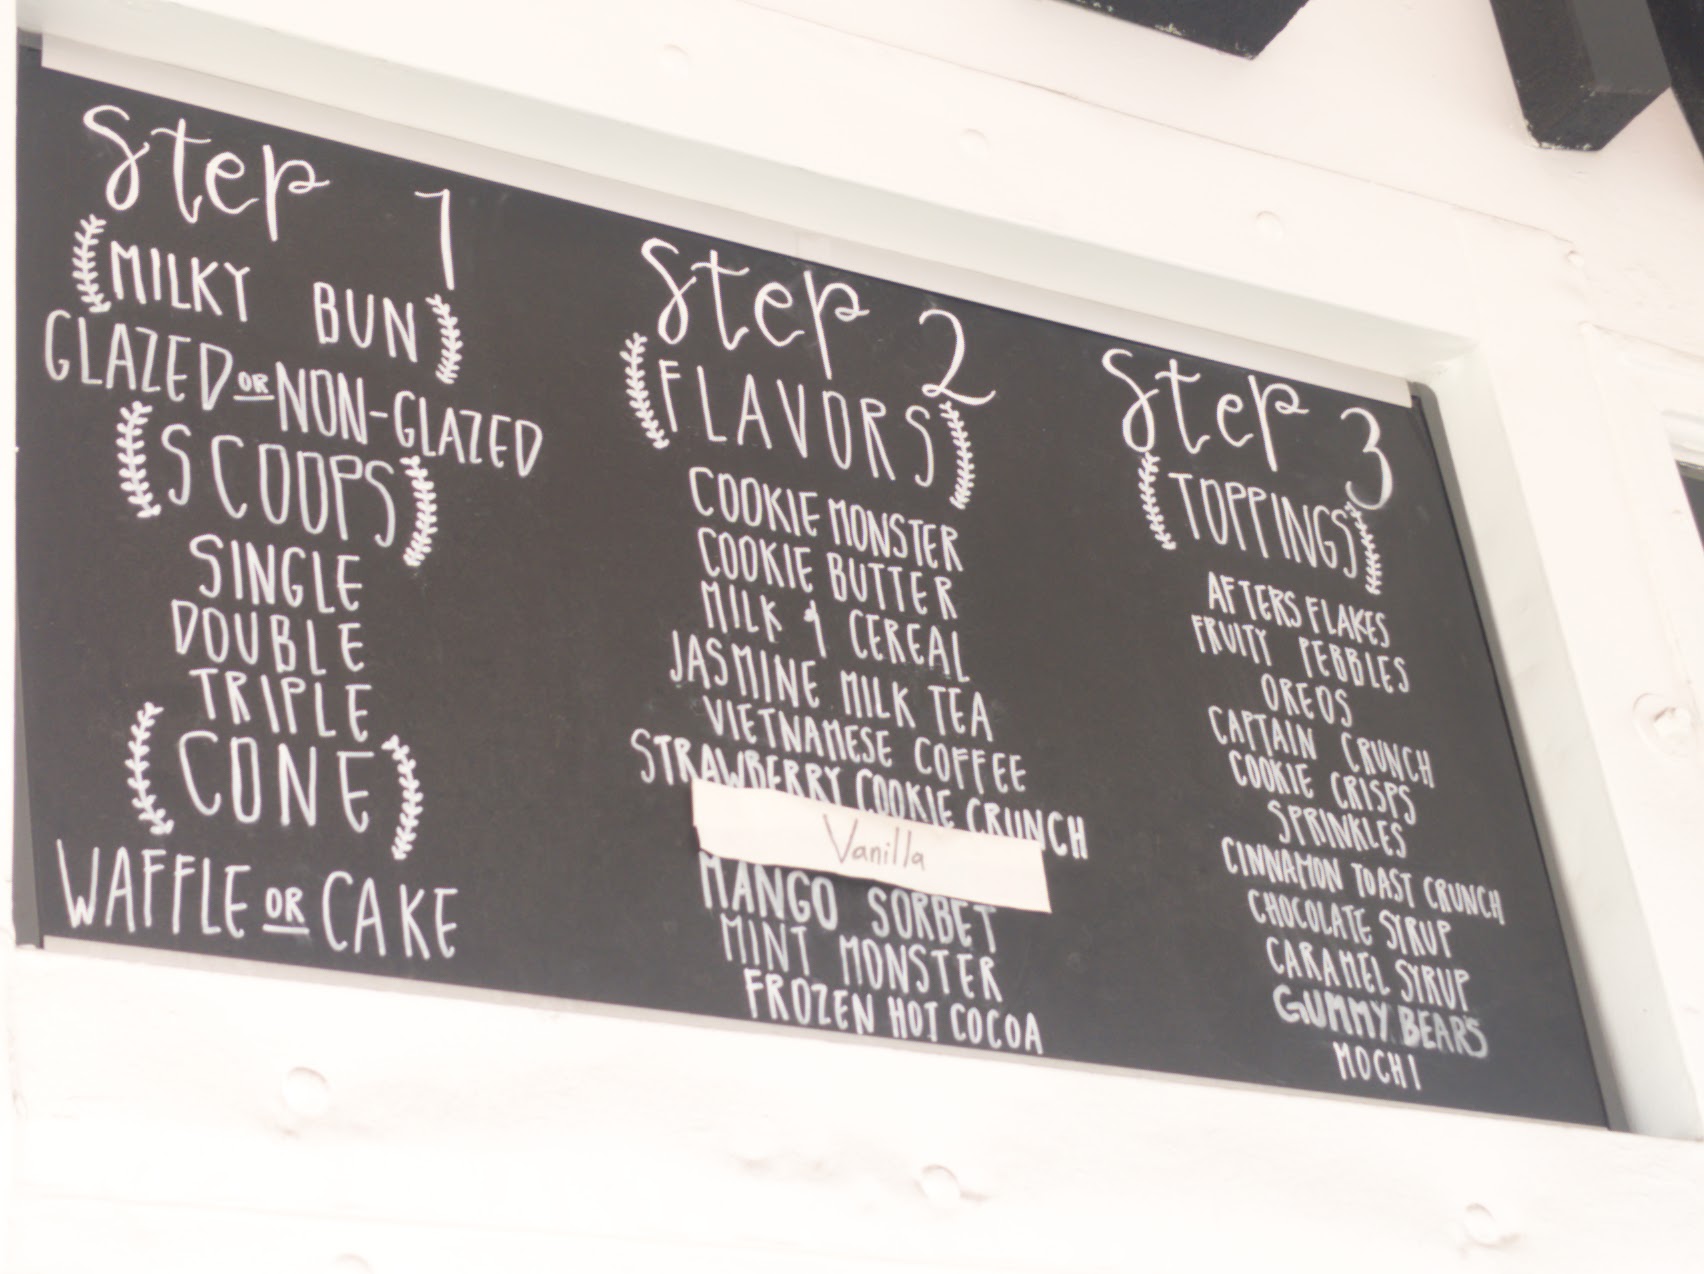 Step 1
MILKY BUN
GLAZED OR NON-GLAZED
SCOOPS
SINGLE
DOUBLE
TRIPLE
CONE
WAFFLE OR CAKE
Step 2
FLAVORS
COOKIE MONSTER
COOKIE BUTTER
MILK & CEREAL
JASMINE MILK TEA
VIETNAMESE COFFEE
STRAWBERRY COOKIE CRUNCH
Vanilla
MANGO SORBET
MINT MONSTER
FROZEN HOT COCOA
Step 3
TOPPINGS
AFTERS FLAKES
FRUITY PEBBLES
OREOS
CAPTAIN CRUNCH
COOKIE CRISPS
SPRINKLES
CINNAMON TOAST CRUNCH
CHOCOLATE SYRUP
CARAMEL SYRUP
GUMMY BEARS
MOCHI